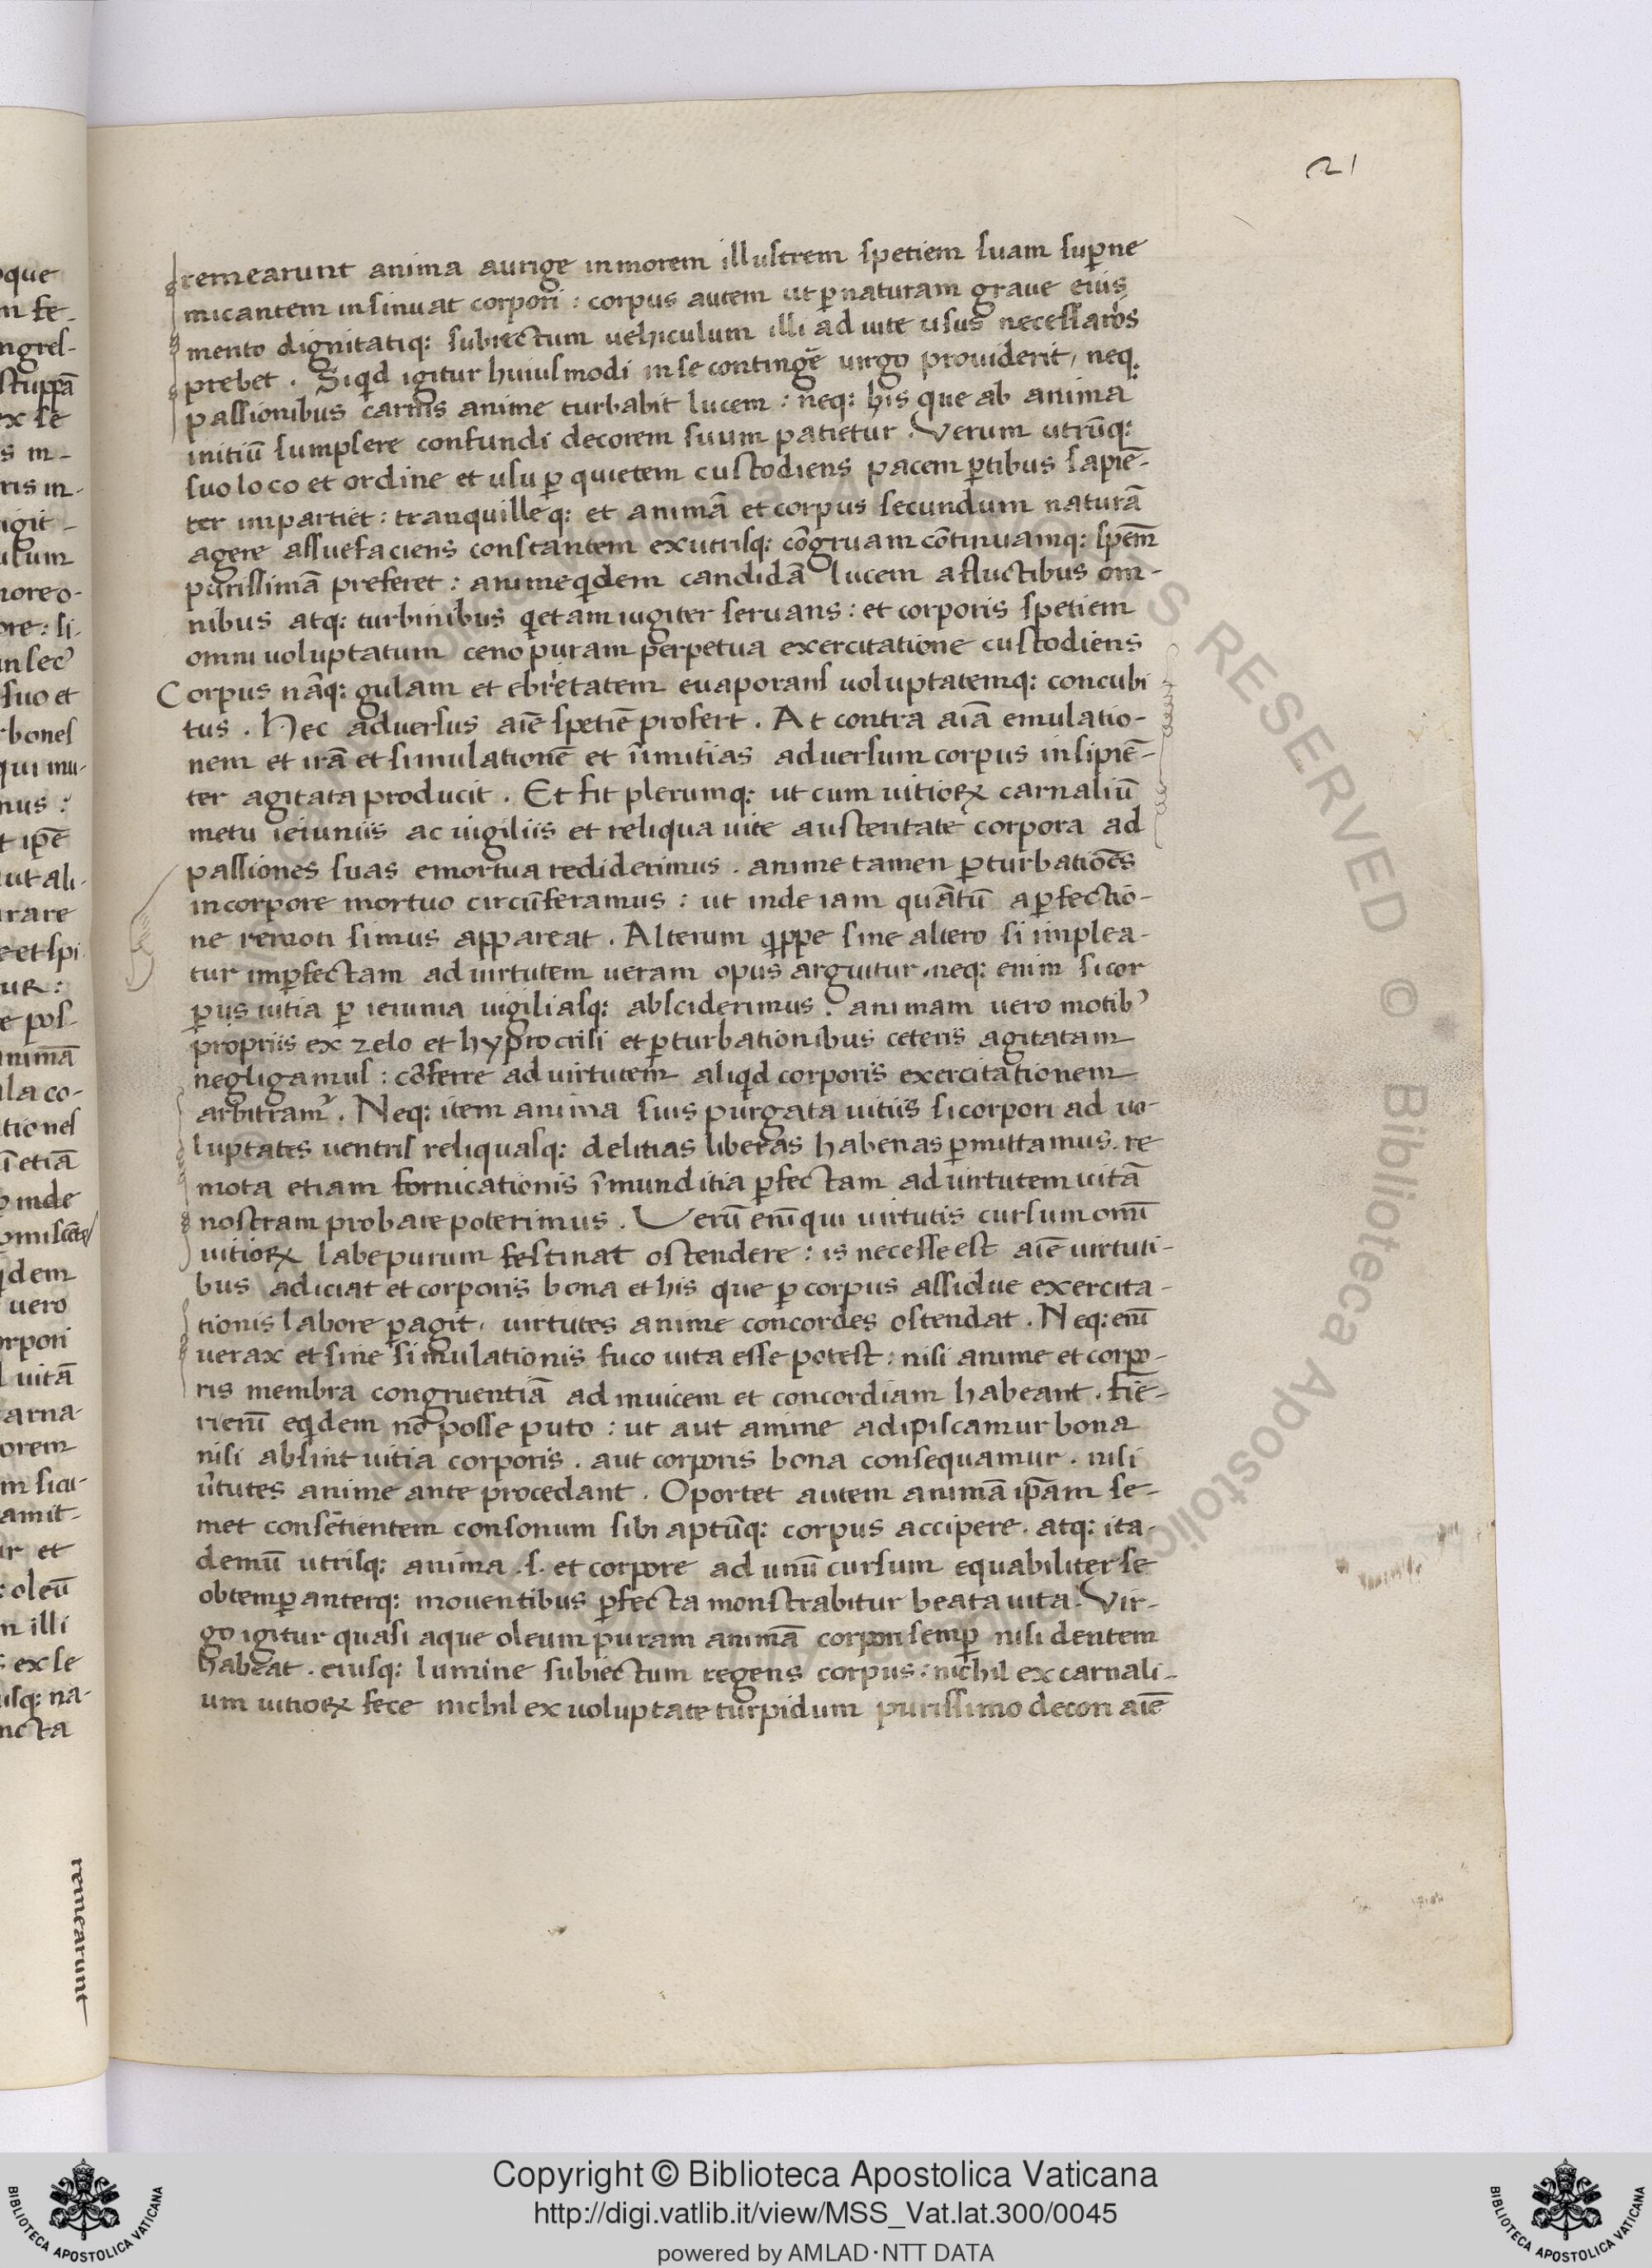 21
oque
m fe-
ngres-
stuppā
ex se
s in-
ris in-
igit-
ulum
more o-
ore: si-
in secꝰ
suo et
rbones
qui mu-
nus:
t ip̄e
ut ali-
rare
e et spi
ur:
e pos-
nimā
la co-
tiones
ī etiā
inde
q̇dem
uero
orpori
uitā
arna-
orem
m sicu-
amit-
ur et
: oleū
n illi
s ex se
isq: na-
ncta
remearunt
remearunt anima aurige in morem illustrem spetiem suam suꝑne
micantem insinuat corpori: corpus autem ut ꝑ naturam graue eius
mento dignitatiq: subiectum uehiculum illi ad uite usus necessarios
prebet. Siqid igitur huiusmodi in se contingē uirgo prouiderit, neq:
passionibus carnis anime turbabit lucem: neq: his que ab anima
initiū sumpsere confundi decorem suum patietur. Verum utrūq:
suo loco et ordine et usu ꝑ quietem custodiens pacem ꝑtibus sapiē-
ter impartiet: tranquilleq: et animā et corpus secundum naturā
agere assuefaciens constantem ex utrisq: cōgruam cōtinuamq: sp̄em
purissimā preferet: anime qidem candidā lucem a fluctibus om-
nibus atq: turbinibus qietam iugiter seruans: et corporis spetiem
omni uoluptatum ceno puram perpetua exercitatione custodiens
Corpus nāq: gulam et ebrietatem euaporans uoluptatemq: concubi
tus. Hec aduersus aīe spetiē profert. At contra aīa emulatio-
nem et irā et simulationē et īimitias aduersum corpus insipiē-
ter agitata producit. Et fit plerumq: ut cum uitioꝝ carnaliū
metu ieiuniis ac uigiliis et reliqua uite austeritate corpora ad
passiones suas emortua rediderimus. anime tamen ꝑturbatiōes
in corpore mortuo circūferamus: ut inde iam quātū a ꝑfectio-
ne remoti simus appareat. Alterum qippe sine altero si implea-
tur imꝑfectam ad uirtutem ueram opus arguitur. neq: enim si cor
pus uitia ꝑ ieiunia uigiliasq: absciderimus. animam uero motibꝰ
propriis ex zelo et hyprocrisi et ꝑturbationibus ceteris agitatam
negligamus: cōferre ad uirtutem aliqid corporis exercitationem
arbitramꝰ. Neq: item anima suis purgata uitiis si corpori ad uo-
luptates uentris reliquasq: delitias liberas habenas ꝑmittamus. re
mota etiam fornicationis īmunditia ꝑfectam ad uirtutem uitā
nostram probare poterimus. Verū enī qui uirtutis cursum omī
uitioꝝ labe purum festinat ostendere: is necesse est aīe uirtuti-
bus adiciat et corporis bona et his que ꝑ corpus assidue exercita-
tionis labore ꝑagit, uirtutes anime concordes ostendat. Neq: enī
uerax et sine simulationis fuco uita esse potest: nisi anime et corpo-
ris membra congruentiā ad inuicem et concordiam habeant. fie-
ri enī eqidem nō posse puto: ut aut anime adipiscamur bona
nisi absint uitia corporis. aut corporis bona consequamur. nisi
ūtutes anime ante procedant. Oportet autem animā ip̄am se-
met consētientem consonum sibi aptūq: corpus accipere. atq: ita-
demū utrisq: anima .s. et corpore ad unū cursum equabiliter se
obtemꝑanterq: mouentibus ꝑfecta monstrabitur beata uita. Vir-
go igitur quasi aque oleum puram animā corpori semꝑ nisi dentem
habeat. eiusq: lumine subiectum regens corpus: nichil ex carnali-
um uitioꝝ fece nichil ex uoluptate turpidum purissimo decori aīe
RIGHTS RESERVED © Biblioteca Apostolica
Copyright © Biblioteca Apostolica Vaticana
http://digi.vatlib.it/view/MSS_Vat.lat.300/0045
powered by AMLAD·NTT DATA
BIBLIOTECA APOSTOLICA VATICANA
BIBLIOTECA APOSTOLICA VATICANA